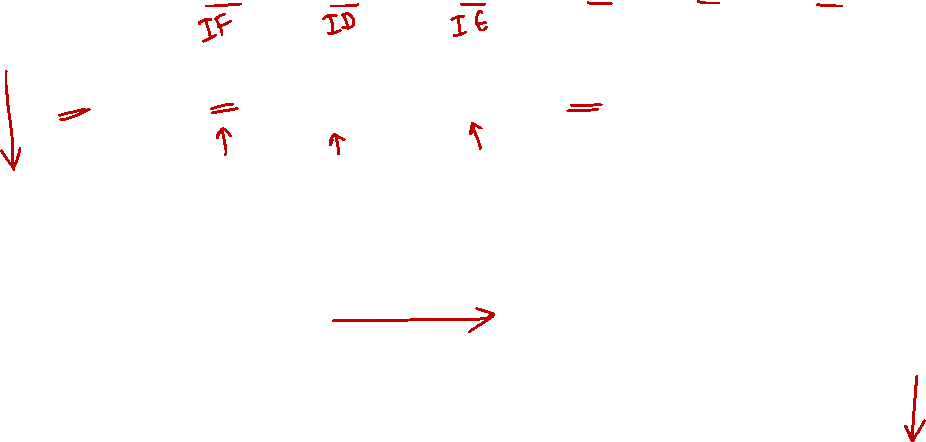 IF ID IE